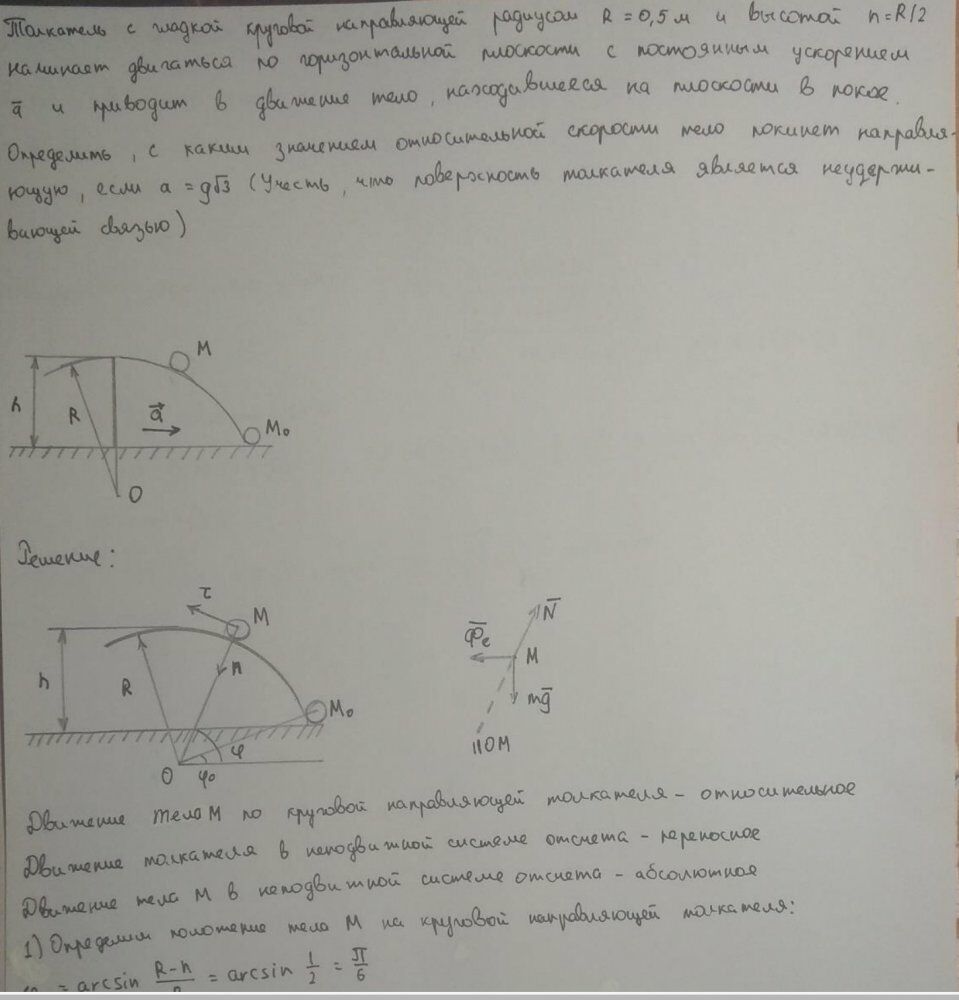 Толкатель с гладкой круговой направляющей радиусом R = 0,5 м и высотой h = R/2
начинает двигаться по горизонтальной плоскости с постоянным ускорением
a̅ и приводит в движение тело, находившееся на плоскости в покое.
Определить, с каким значением относительной скорости тело покинет направля-
ющую, если a = g√3 (Учесть, что поверхность толкателя является неудержи-
вающей связью)
M
h
R
a⃗
M₀
O
Решение:
τ
M
n
h
R
M₀
φ
O
φ₀
N̅
Φ̅e
M
mg̅
||OM
Движение тела M по круговой направляющей толкателя – относительное
Движение толкателя в неподвижной системе отсчета – переносное
Движение тела M в неподвижной системе отсчета – абсолютное
1) Определим положение тела M на круговой направляющей толкателя:
= arcsin (R-h)/R = arcsin 1/2 = π/6